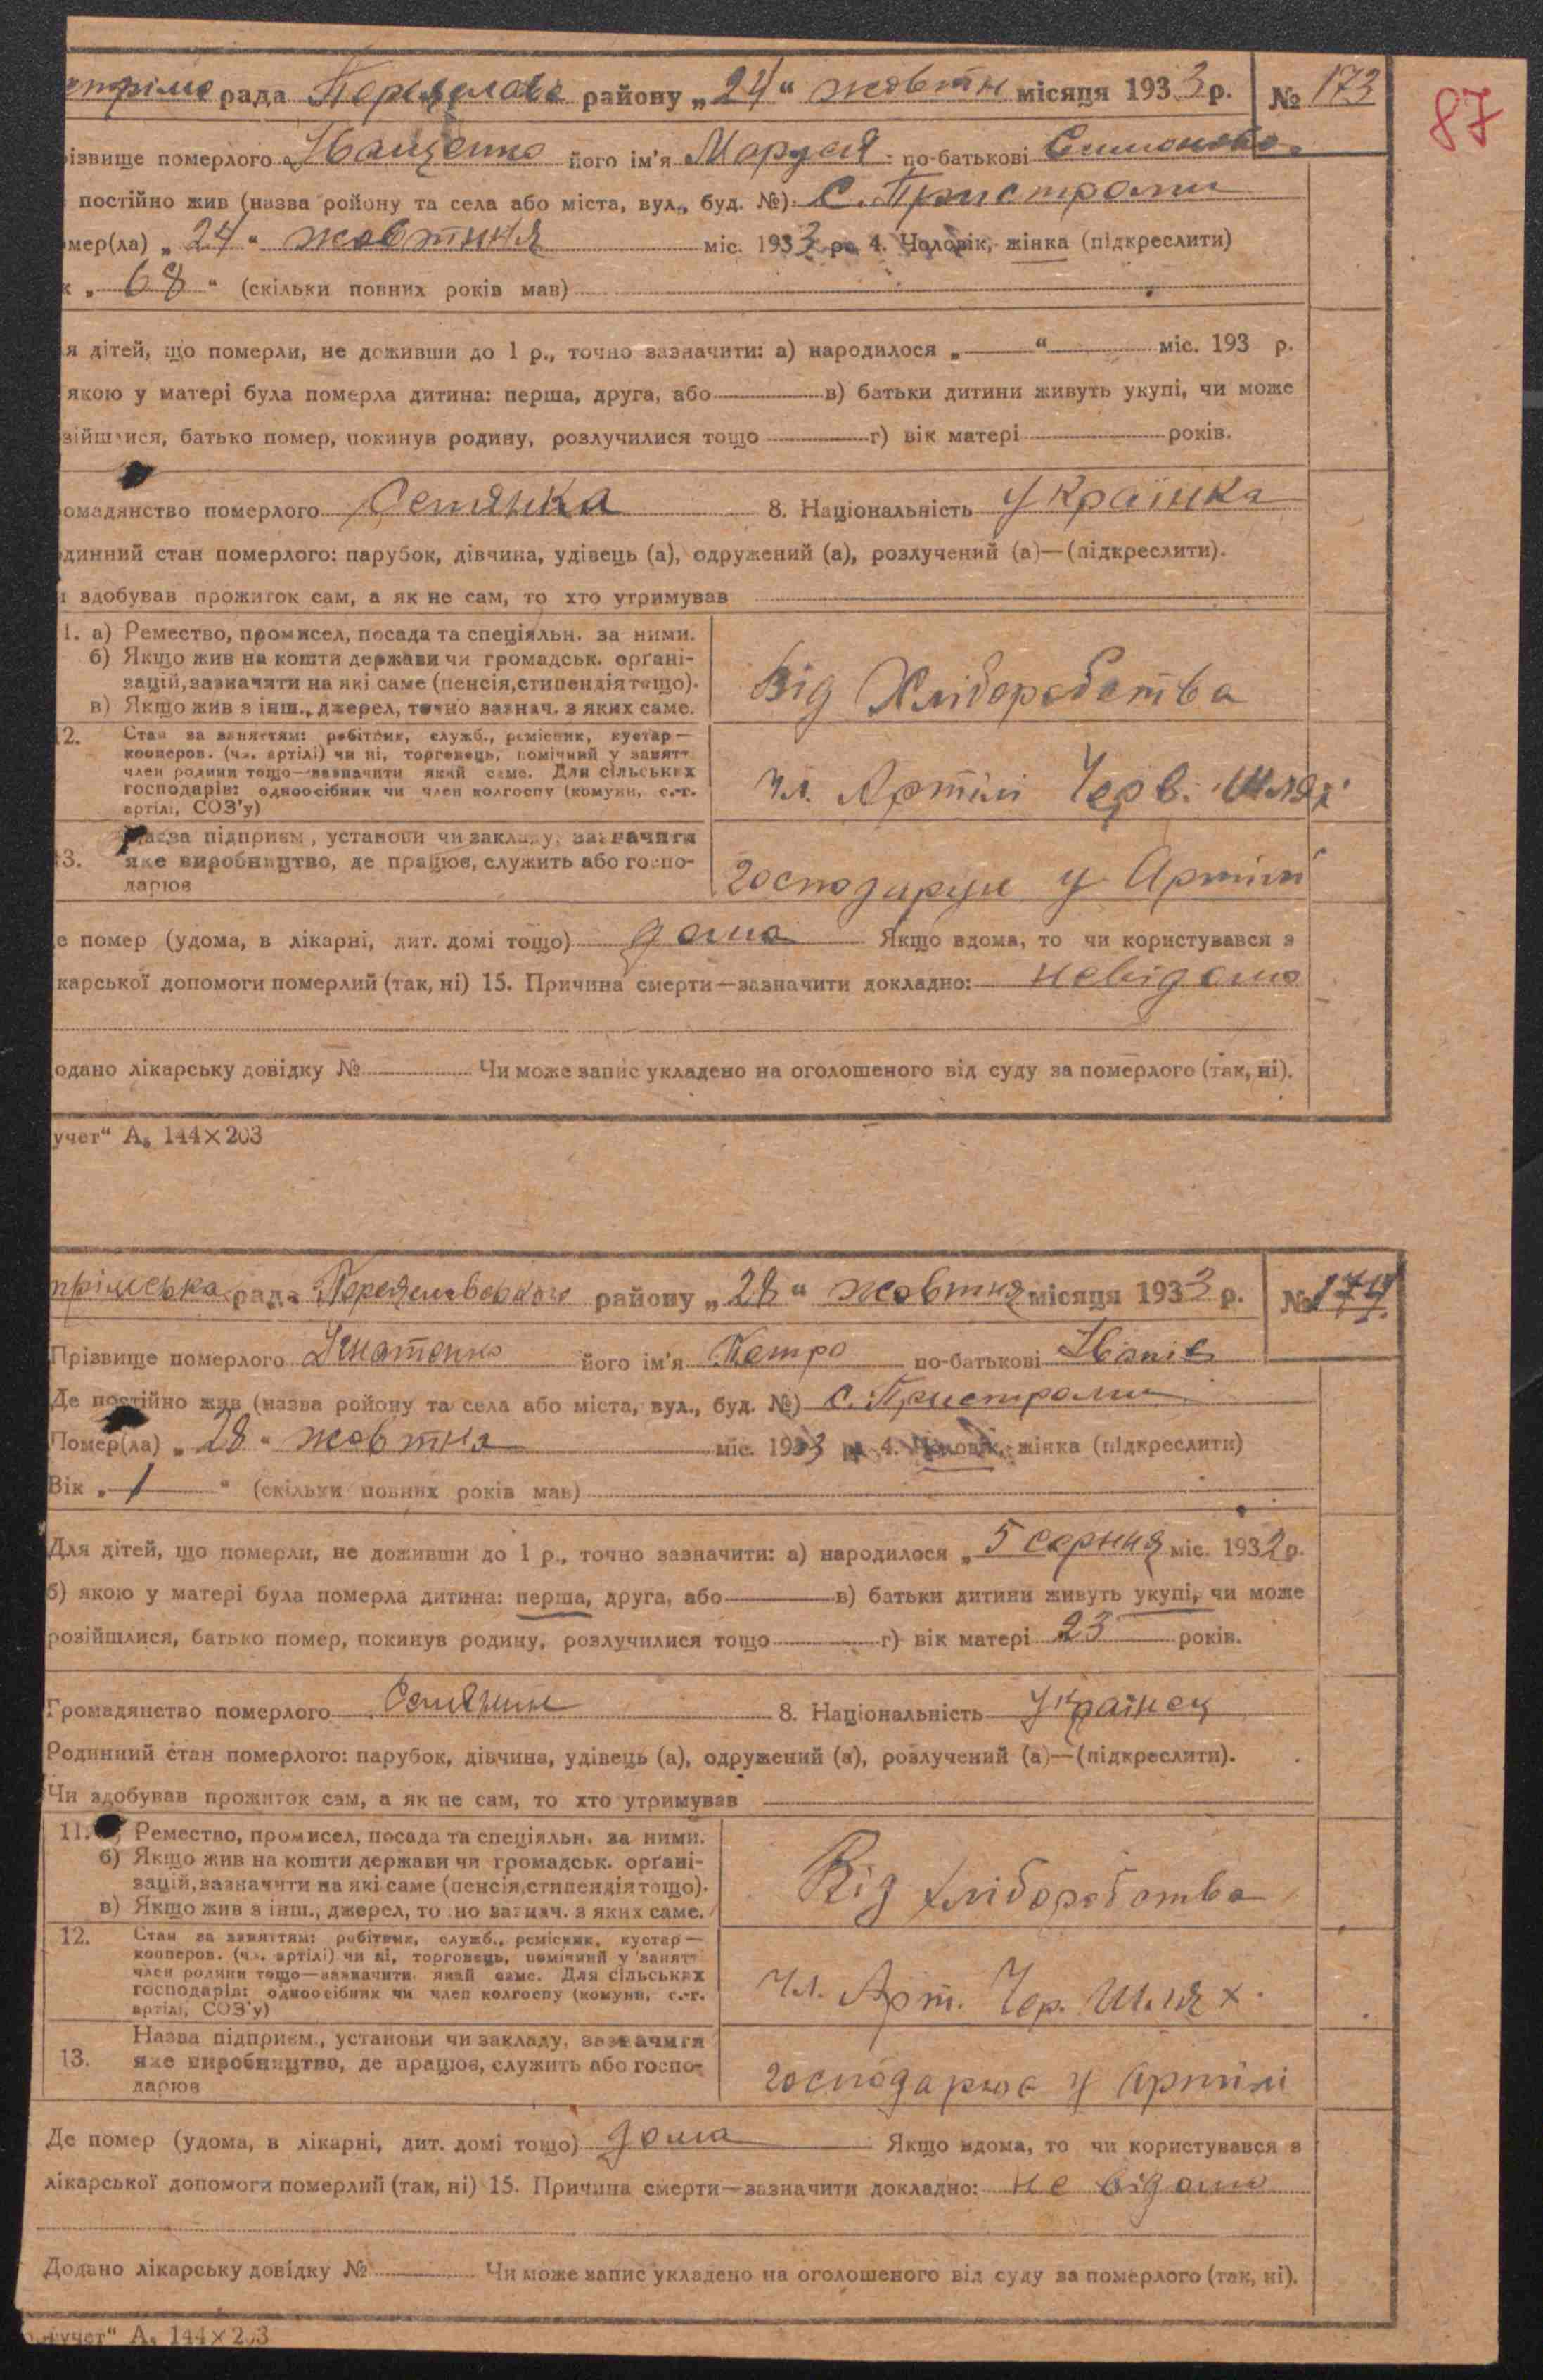 рада Переяслав району „24“ жовтн місяця 1933 р. № 173
87
різвище померлого Іващенко його ім'я Маруся по-батькові Симонова
постійно жив (назва ройону та села або міста, вул., буд. №) С. Пристроми
мер(ла) „24“ жовтння міс. 1933 р. 4. Чоловік, жінка (підкреслити)
к „68“ (скільки повних років мав)
я дітей, що померли, не доживши до 1 р., точно зазначити: а) народилося „ “ міс. 193 р.
якою у матері була померла дитина: перша, друга, або в) батьки дитини живуть укупі, чи може
зійшлися, батько помер, покинув родину, розлучилися тощо г) вік матері років.
омадянство померлого Селянка 8. Національність Українка
одинний стан померлого: парубок, дівчина, удівець (а), одружений (а), розлучений (а)—(підкреслити).
и здобував прожиток сам, а як не сам, то хто утримував
1. а) Ремество, промисел, посада та спеціяльн. за ними.
б) Якщо жив на кошти держави чи громадськ. орґані-
зацій, зазначити на які саме (пенсія, стипендія тощо).
в) Якщо жив з інш., джерел, точно зазнач. з яких саме.
Від Хліборобства
12. Стан за заняттям: робітник, служб., ремісник, кустар—
кооперов. (чл. артілі) чи ні, торговець, помічний у занятт
член родини тощо—зазначити який саме. Для сільських
господарів: одноосібник чи член колгоспу (комуни, с.-г.
артілі, СОЗ'у)
Чл. Артілі Черв. Шлях
13. Назва підприєм., установи чи закладу, зазначити
яке виробництво, де працює, служить або госпо-
дарює
господарує у Артілі
е помер (удома, в лікарні, дит. домі тощо) дома Якщо вдома, то чи користувався з
карської допомоги померлий (так, ні) 15. Причина смерти—зазначити докладно: невідомо
одано лікарську довідку № Чи може запис укладено на оголошеного від суду за померлого (так, ні).
учет“ А₅ 144×203
рада Переяславського району „28“ жовтня місяця 1933 р. № 174
Прізвище померлого Ігнатенко його ім'я Петро по-батькові Іванів
Де постійно жив (назва ройону та села або міста, вул., буд. №) с. Пристроми
Помер(ла) „28“ жовтня міс. 1933 р. 4. Чоловік, жінка (підкреслити)
Вік „1“ (скільки повних років мав)
Для дітей, що померли, не доживши до 1 р., точно зазначити: а) народилося „5 серпня міс. 1932 р.
б) якою у матері була померла дитина: перша, друга, або в) батьки дитини живуть укупі, чи може
розійшлися, батько помер, покинув родину, розлучилися тощо г) вік матері 23 років.
Громадянство померлого Селянин 8. Національність Українец
Родинний стан померлого: парубок, дівчина, удівець (а), одружений (а), розлучений (а)—(підкреслити).
Чи здобував прожиток сам, а як не сам, то хто утримував
11. Ремество, промисел, посада та спеціяльн. за ними.
б) Якщо жив на кошти держави чи громадськ. орґані-
зацій, зазначити на які саме (пенсія, стипендія тощо).
в) Якщо жив з інш., джерел, точно зазнач. з яких саме.
Від хліборобства
12. Стан за заняттям: робітник, служб., ремісник, кустар—
кооперов. (чл. артілі) чи ні, торговець, помічний у занятт
член родини тощо—зазначити який саме. Для сільських
господарів: одноосібник чи член колгоспу (комуни, с.-г.
артілі, СОЗ'у)
Чл. Арт. Чер. Шлях.
Назва підприєм., установи чи закладу, зазначити
13. яке виробництво, де працює, служить або госпо-
дарює
господарює у артілі
Де помер (удома, в лікарні, дит. домі тощо) дома Якщо вдома, то чи користувався з
лікарської допомоги померлий (так, ні) 15. Причина смерти—зазначити докладно: не відомо
Додано лікарську довідку № Чи може запис укладено на оголошеного від суду за померлого (так, ні).
учет“ А₅ 144×203